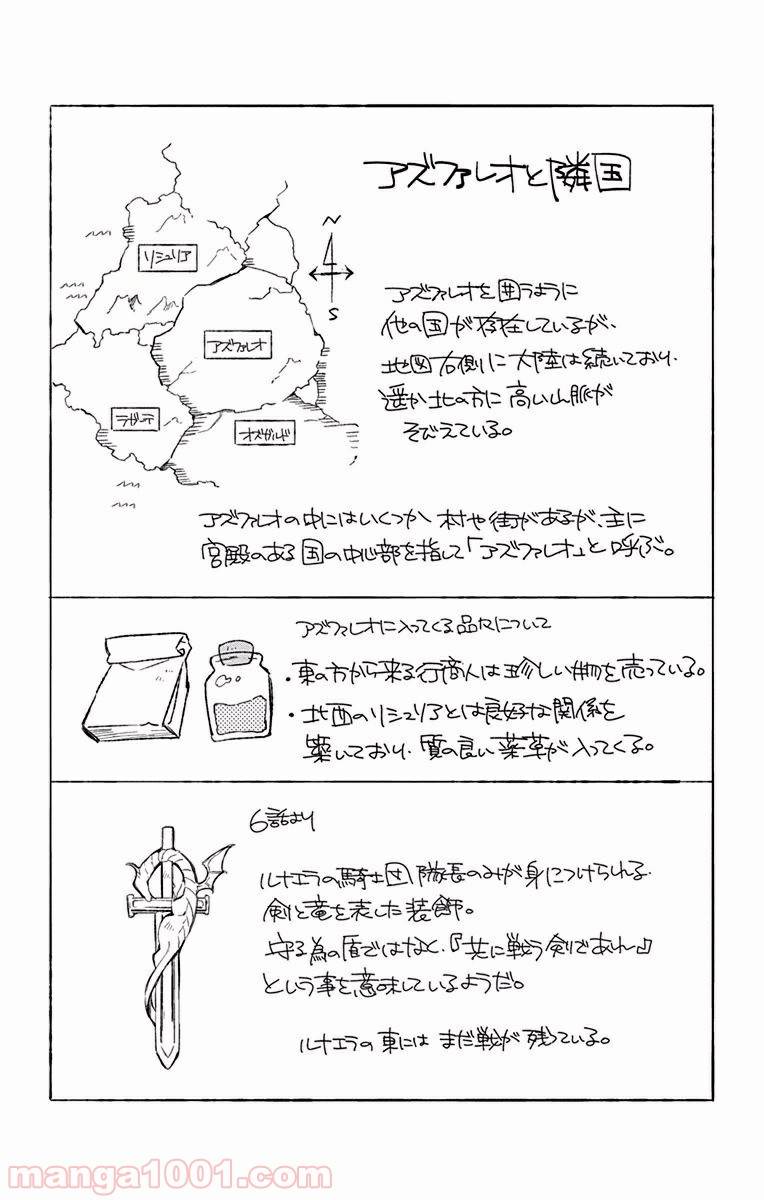 アズファレオと隣国
リシュリア
N
S
アズファレオ
オズガルド
アズファレオを囲うように
他の国が存在しているが、
地図右側に大陸は続いており、
遥か北の方に高い山脈が
そびえている。
アズファレオの中にはいくつか村や街があるが、主に
宮殿のある国の中心部を指して「アズファレオ」と呼ぶ。
アズファレオに入ってくる品々について
・東の方から来る行商人は珍しい物を売っている。
・北西のリシュリアとは良好な関係を
築いており、質の良い薬草が入ってくる。
6話より
ルナエラの騎士団隊長のみが身につけられる
剣と竜を表した装飾。
守る為の盾ではなく、『共に戦う剣であれ』
という事を意味しているようだ。
ルナエラの東にはまだ戦が残っている。
manga1001.com